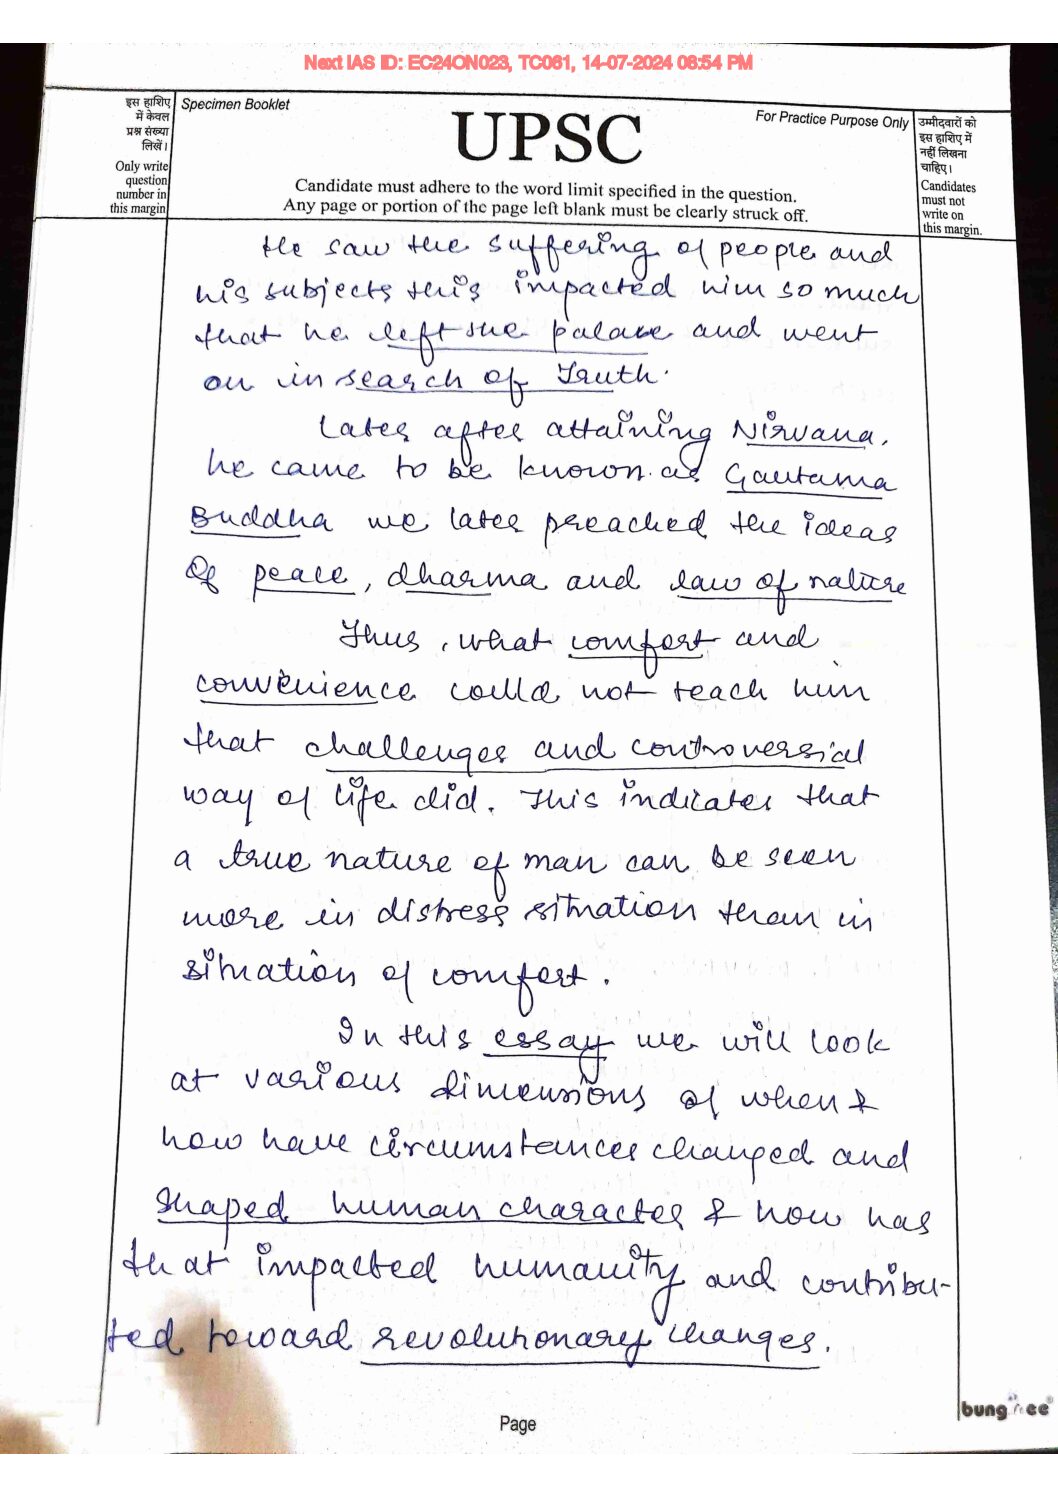 Next IAS ID: EC24ON023, TC061, 14-07-2024 08:54 PM
इस हाशिए
में केवल
प्रश्न संख्या
लिखें।
Only write
question
number in
this margin
Specimen Booklet
UPSC
For Practice Purpose Only
Candidate must adhere to the word limit specified in the question.
Any page or portion of the page left blank must be clearly struck off.
उम्मीदवारों को
इस हाशिए में
नहीं लिखना
चाहिए।
Candidates
must not
write on
this margin.
He saw the suffering of people and
his subjects this impacted him so much
that he left the palace and went
on in search of Truth.
Later after attaining Nirvana,
he came to be known as Gautama
Buddha we later preached the ideas
of peace, dharma and law of nature
Thus, what comfort and
convenience could not teach him
that challenges and controversial
way of life did. This indicates that
a true nature of man can be seen
more in distress situation than in
situation of comfort.
In this essay we will look
at various dimensions of when &
how have circumstances changed and
shaped human character & how has
that impacted humanity and contribu-
ted toward revolutionary changes.
Page